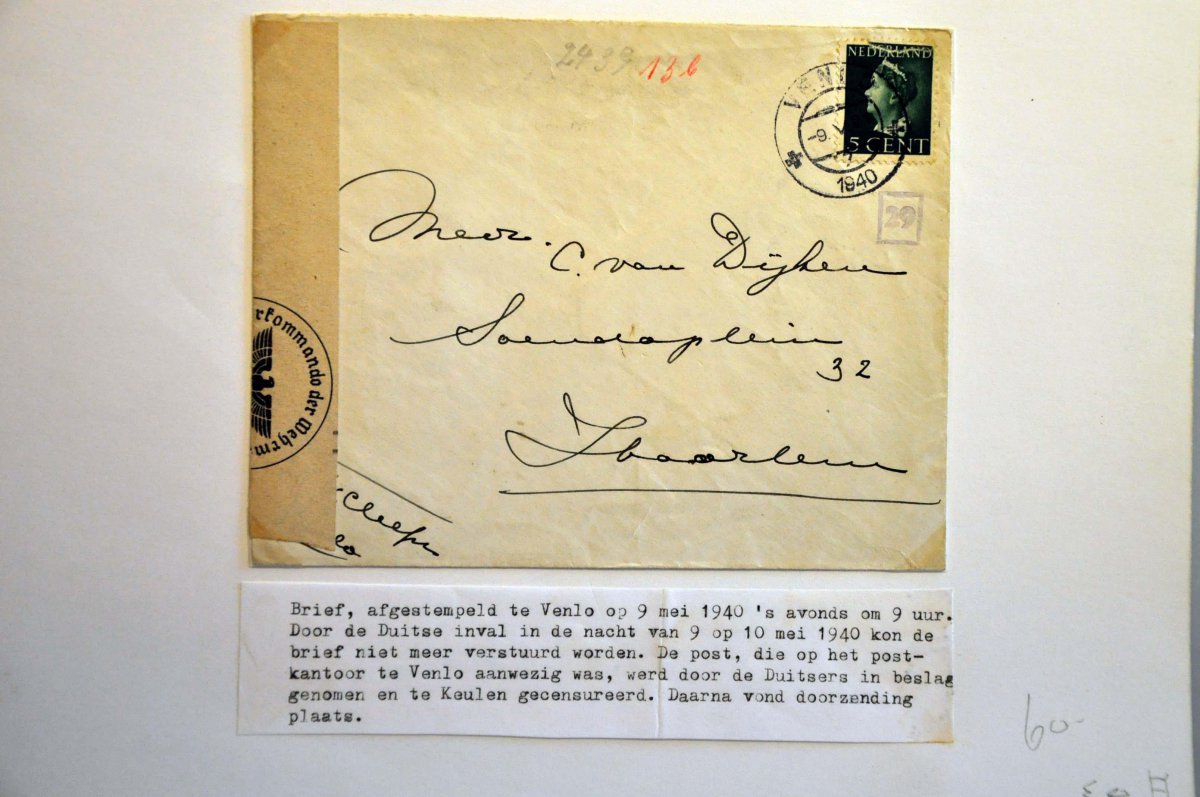 2439 156
NEDERLAND
5 CENT
VEN
-9. V
1940
29
Meer. C. van Dijken
Soendaplein
32
Haarlem
rkommando der Wehrm
Brief, afgestempeld te Venlo op 9 mei 1940 's avonds om 9 uur.
Door de Duitse inval in de nacht van 9 op 10 mei 1940 kon de
brief niet meer verstuurd worden. De post, die op het post-
kantoor te Venlo aanwezig was, werd door de Duitsers in beslag
genomen en te Keulen gecensureerd. Daarna vond doorzending
plaats.
60-
II